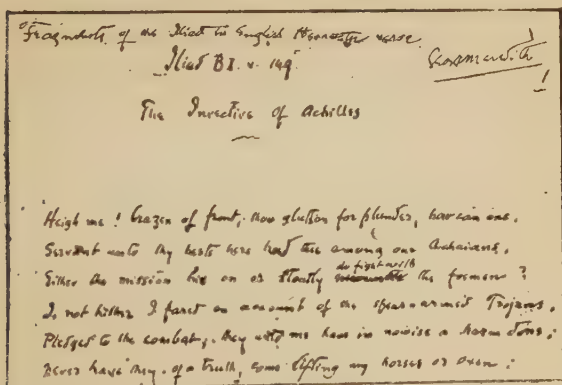 Fragments of the Iliad in English Hexameter verse
Geo Meredith
Iliad B I. v. 149
The Invective of Achilles
Heigh me! brazen of front, thou glutton for plunder, how can one,
Servant unto thy hests here heed thee among our Achaians,
Either the mission hie on or stoutly do fight with the foemen?
I, not hither I fared on account of the spear-armed Trojans,
Pledged to the combat; they unto me have in nowise a harm done;
Never have they, of a truth, come lifting my horses or oxen;